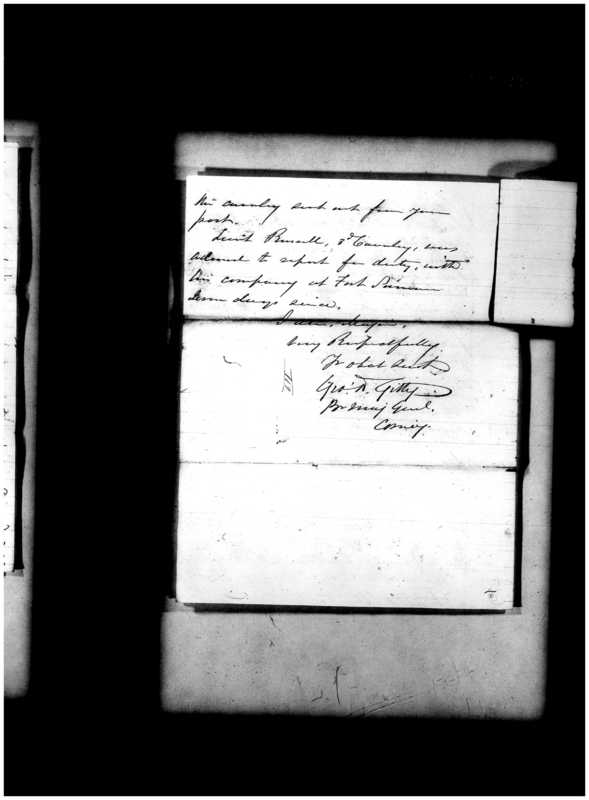 the cavalry sent out from your
post.
Lieut Russell, 3d Cavalry, was
ordered to report for duty, with
his company at Fort
some days since.
I am, Major,
Very Respectfully
Yr obdt Servt
Geo. W. Getty
Bv Maj Genl.
Comdg.